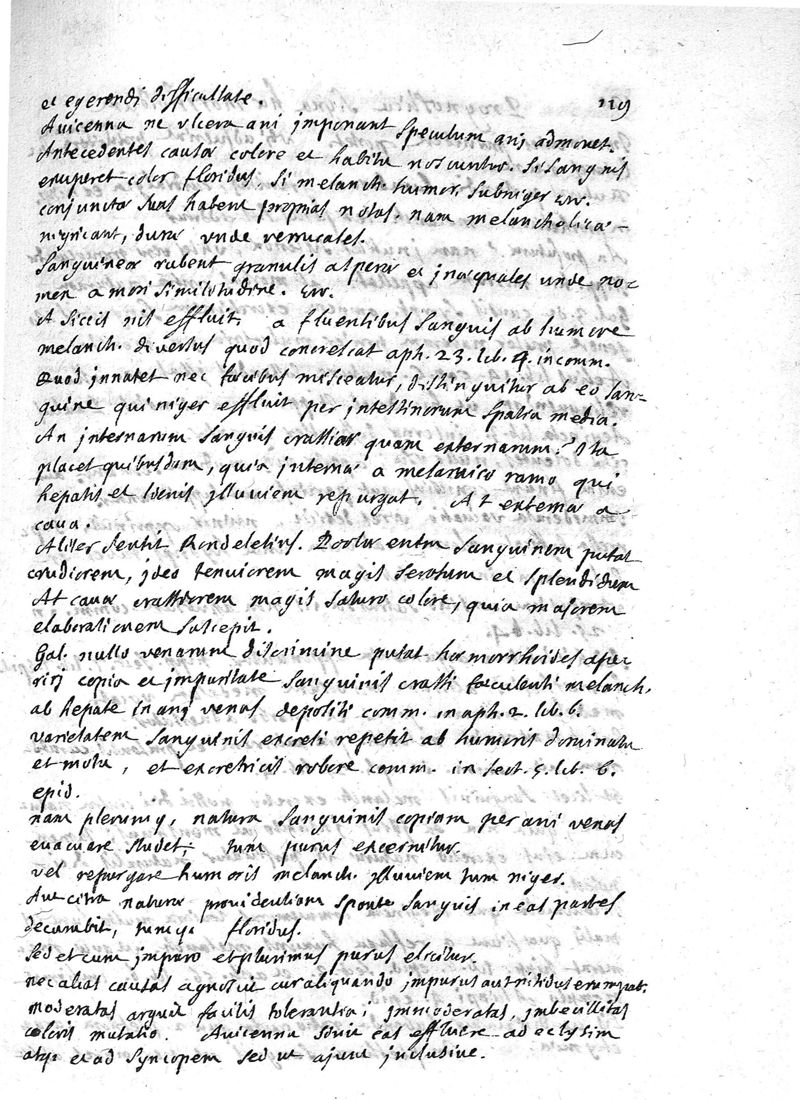 119
et egerendi difficultate.
Auicenna ne vlcera ani imponant speculum ani admouet.
Antecedentes causæ colore et habitu noscuntur. si sanguis
eruperet color floridus, si melanch. humor. subniger &c.
conjunctæ suas habent proprias notas. nam melancholicæ
nigricant, duræ vnde verrucales.
Sanguineæ rubent granulis asperæ et inæquales unde no-
men a mori similitudine. &c.
A siccis nil effluit, a fluentibus sanguis ab humore
melanch. diuersus quod concrescat aph. 23. lib. 4. in comm.
Quod innatet nec fæcibus misceatur, distinguitur ab eo san-
guine qui niger effluit per intestinorum spatia media.
An internarum sanguis crassior quam externarum? Ita
placet quibusdam, quia interna a meseraico ramo qui
hepatis et lienis illuuiem repurgat. At externa a
caua.
Aliter sentit Rondeletius. Portæ enim sanguinem putat
crudiorem, ideo tenuiorem magis serosum et splendidum
At cauæ crassiorem magis saturo colore, quia majorem
elaborationem suscepit.
Gal. nullo venarum discrimine putat hæmorrhoides ape-
riri copia et impuritate sanguinis crassi fæculenti melanch.
ab hepate in ani venas depositi comm. in aph. 2. lib. 6.
varietatem sanguinis excreti repetit ab humoris dominatu
et motu, et excretricis robore comm. in sect. 5. lib. 6.
epid.
nam plerumq, natura sanguinis copiam per ani venas
euacuare studet, tum purus excernitur.
vel repurgare humoris melanch. illuuiem tum niger.
Aut citra naturæ prouidentiam sponte sanguis in eas partes
decumbit, tumq. floridus.
Sed et cum impuro et plurimus purus elicitur.
nec alias causas agnoscit cur aliquando impurus aut nitidus erumpat.
moderatas arguit facilis tolerantia; immoderatas, imbecillitas
coloris mutatio. Auicenna sinit eas effluere ad eclysim
atq. et ad syncopem sed ut ajunt inclusiue.